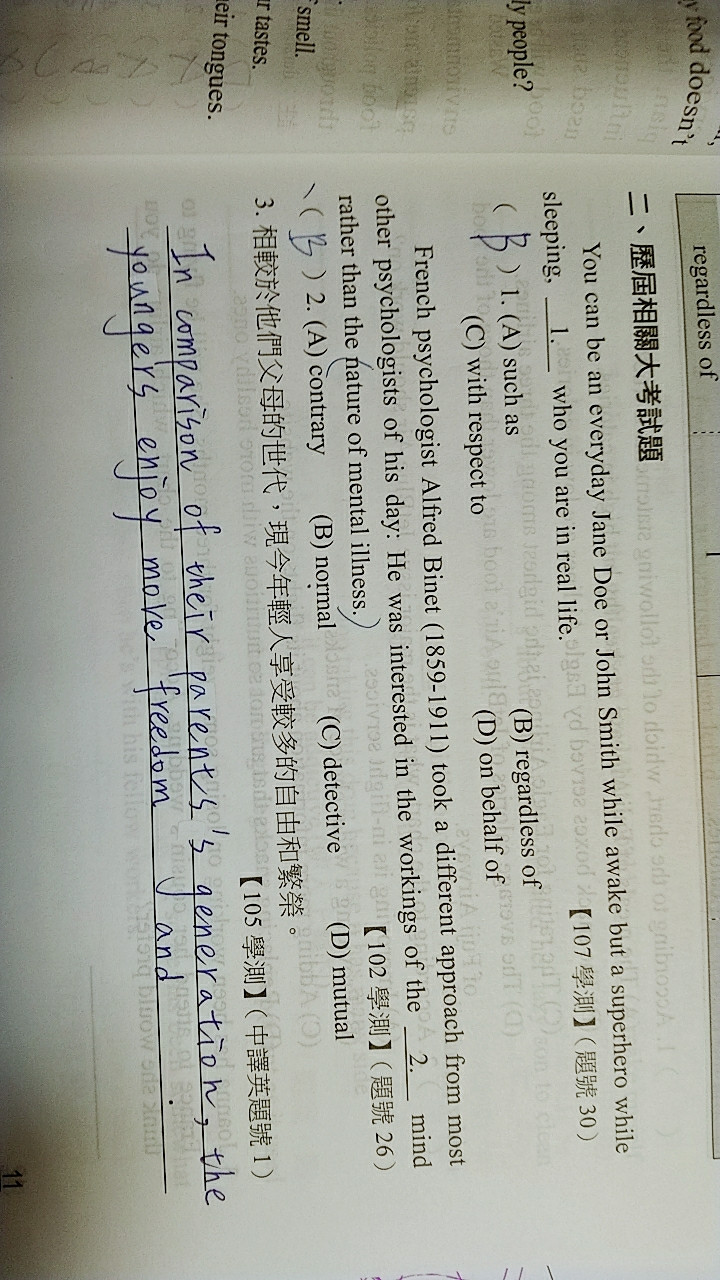 y food doesn't
ly people?
f smell.
r tastes.
eir tongues.
regardless of
二、歷屆相關大考試題
You can be an everyday Jane Doe or John Smith while awake but a superhero while
sleeping, 1. who you are in real life. 【107 學測】(題號 30)
( B ) 1. (A) such as (B) regardless of
(C) with respect to (D) on behalf of
French psychologist Alfred Binet (1859-1911) took a different approach from most
other psychologists of his day: He was interested in the workings of the 2. mind
rather than the nature of mental illness. 【102 學測】(題號 26)
( B ) 2. (A) contrary (B) normal (C) detective (D) mutual
3. 相較於他們父母的世代，現今年輕人享受較多的自由和繁榮。
【105 學測】(中譯英題號 1)
In comparison of their parents's generation, the
youngers enjoy more freedom and .
11